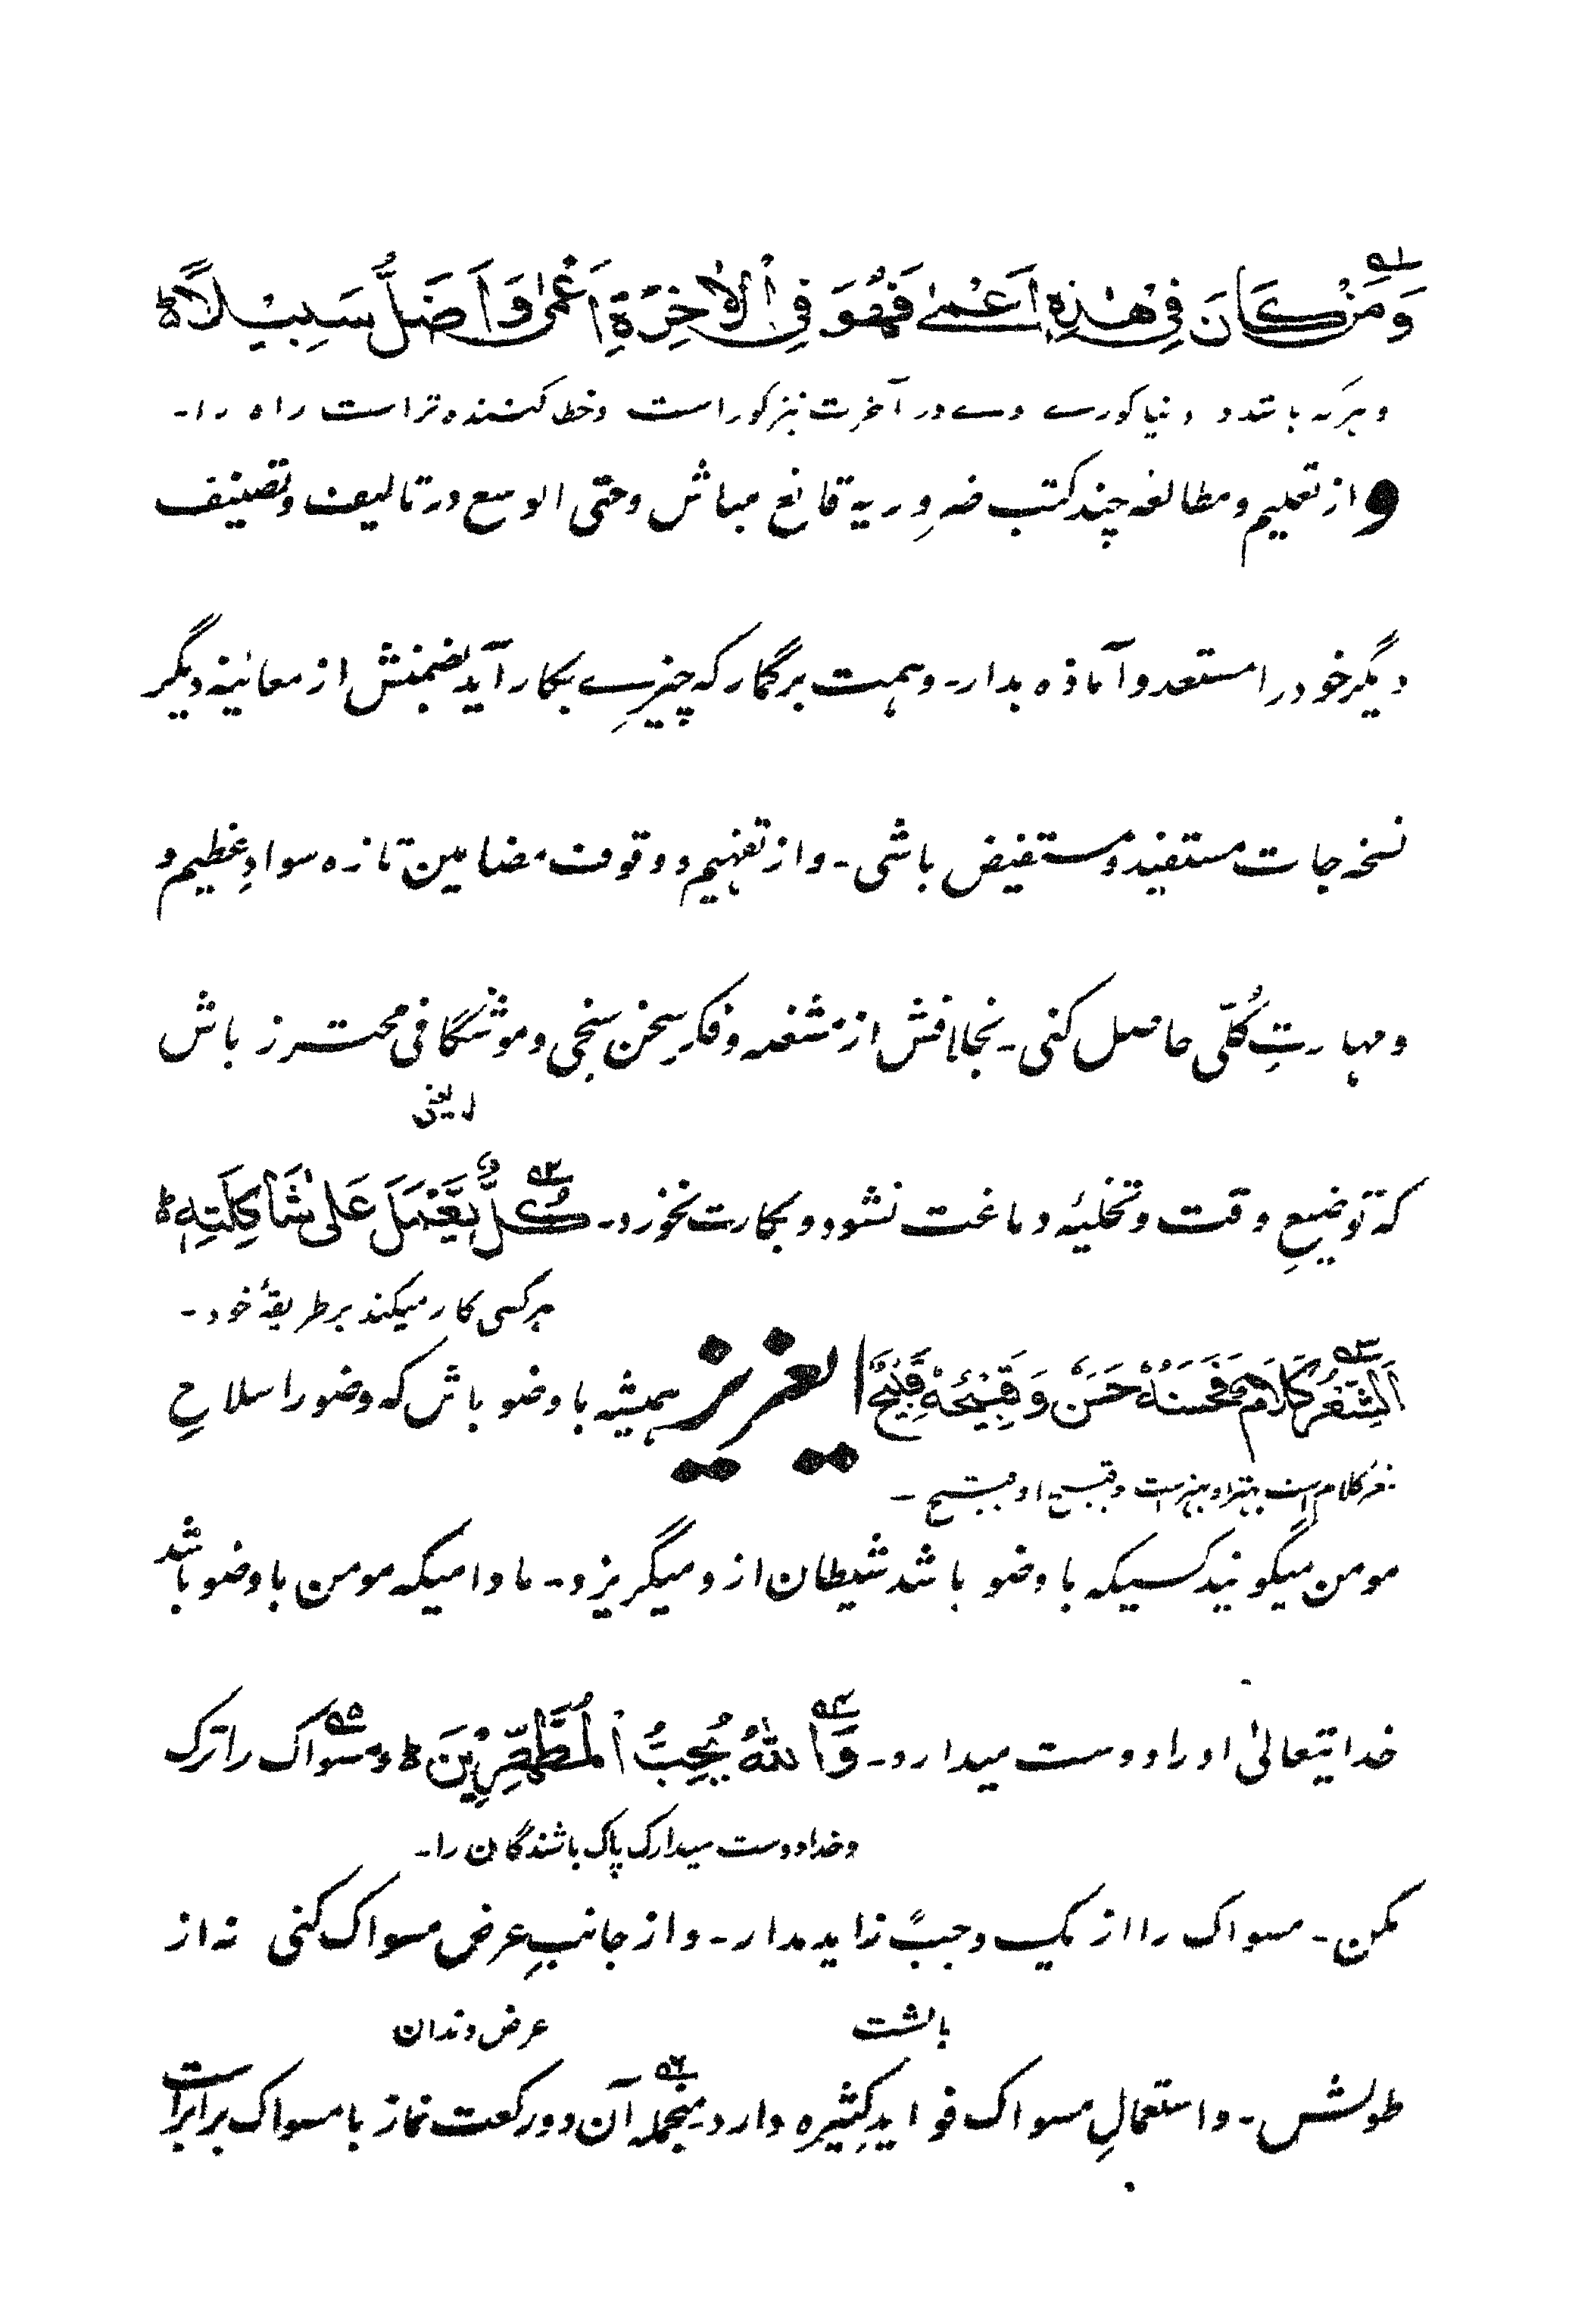 وَمَنْ كَانَ فِيْ هٰذِهٖ اَعْمٰى فَهُوَ فِي الْاٰخِرَةِ اَعْمٰى وَاَضَلُّ سَبِيْلًا ط
و هرکه باشد در دنیا کورے وے در آخرت نیز کور است و خطا کننده تر است راه را۔
و از تعلیم و مطالعه چند کتب ضروریه قانع مباش و حتی الوسع در تالیف و تصنیف
دیگر خود را مستعد و آماده بدار۔ و همت برگمار که چیزے بکار آید بضمنش از معائنهٔ دیگر
نسخه جات مستفید و مستفیض باشی۔ و از تفهیم و وقوف مضامین تازه سوادِ عظیم و
و مهارتِ کُلّی حاصل کنی۔ بخلافش از مشغله و فکرِ سخن سنجی و موشگافی محترز باش
یعنی
که تو ضیعِ وقت و تخلیهٔ دماغت نشود و بکارت نخورد۔ كُلٌّ يَّعْمَلُ عَلٰى شَاكِلَتِهٖ ط
هر کسی کار میکند بر طریقهٔ خود۔
اَلشِّعْرُ كَلَامٌ فَحَسَنُهٗ حَسَنٌ وَ قَبِيْحُهٗ قَبِيْحٌ ایعزیز همیشه با وضو باش که وضو را سلاحِ
شعر کلام است بهتر او بهتر است و قبیح او قبیح۔
مومن میگویند کسیکه با وضو باشد شیطان ازو میگریزد۔ مادامیکه مومن باوضو باشد
خدایتعالیٰ او را دوست میدارد۔ وَاللّٰهُ يُحِبُّ الْمُطَّهِّرِيْنَ ط و مسواک را ترک
و خدا دوست میدارد پاک باشندگان را۔
مکن۔ مسواک را از یک وجب زاید مدار۔ و از جانبِ عرض مسواک کنی نه از
بالشت عرض دندان
طولش۔ و استعمالِ مسواک فوایدِ کثیره دارد منجمله آن دو رکعت نماز با مسواک برابر است